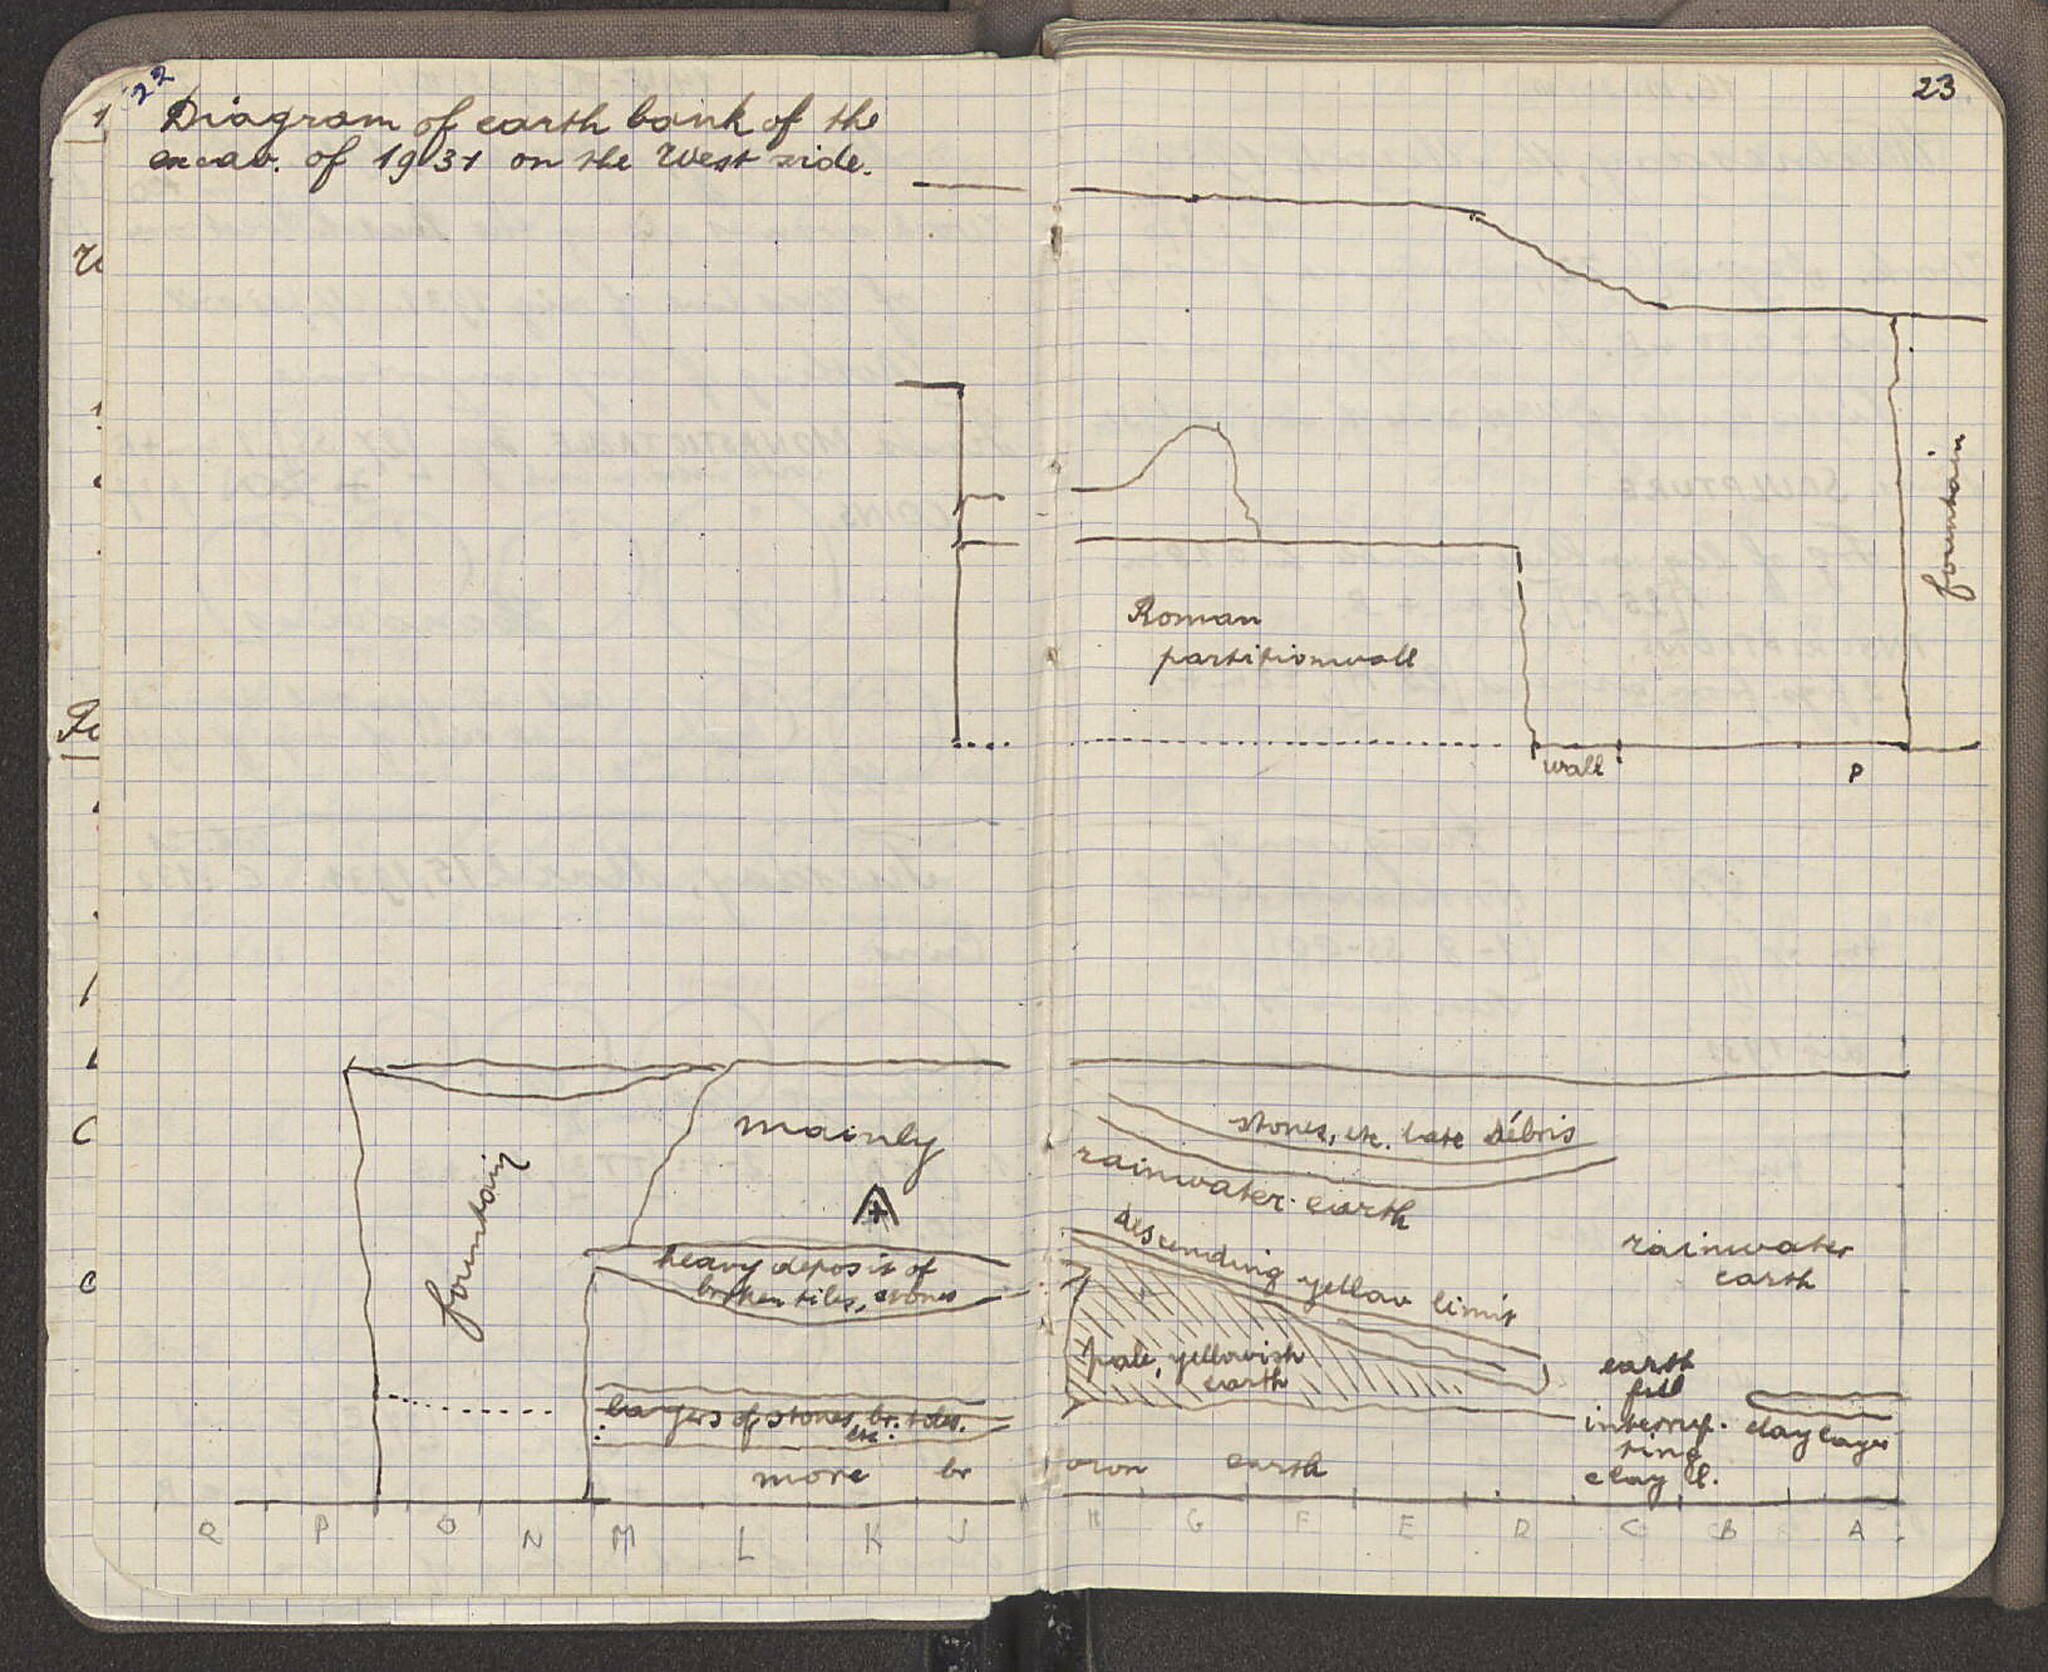 22
Diagram of earth bank of the
excav. of 1931 on the West side.
23
fountain
Roman
partitionwall
wall
P
fountain
mainly
heavy deposit of
broken tiles, stones
layers of stones, br. tiles.
etc.
more br
Q P O N M L K J
stones, etc. late débris
rainwater-earth
descending yellow limit
rainwater
earth
pale, yellowish
earth
earth
fill
interrup-
ting
clay l.
clay layer
own earth
H G F E D C B A